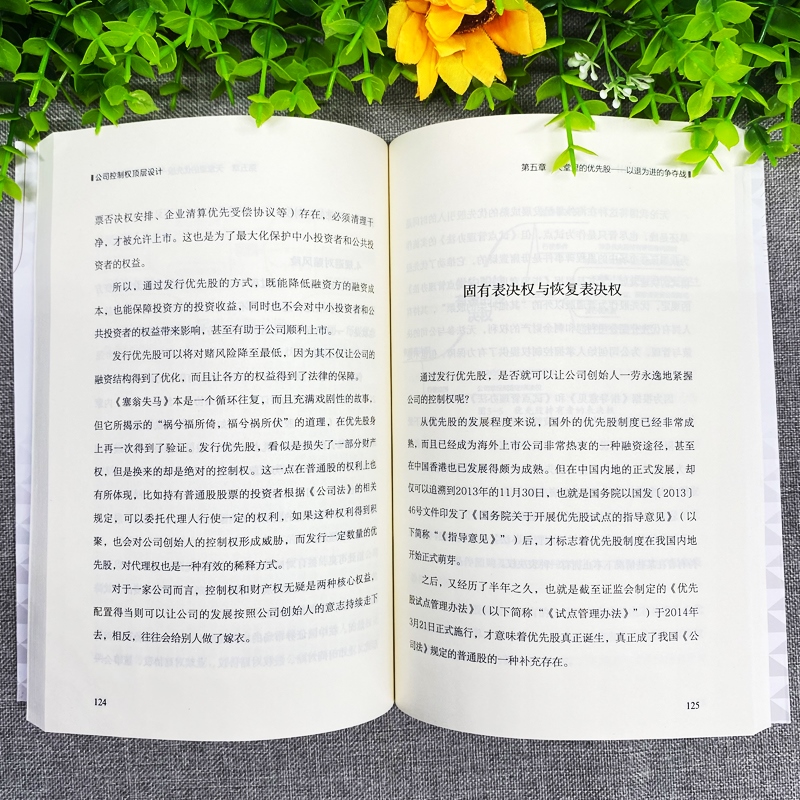 公司控制权顶层设计
票否决权安排、企业清算优先受偿协议等）存在，必须清理干
净，才被允许上市。这也是为了最大化保护中小投资者和公共投
资者的权益。
所以，通过发行优先股的方式，既能降低融资方的融资成
本，也能保障投资方的投资收益、同时也不会对中小投资者和公
共投资者的权益带来影响，甚至有助于公司顺利上市。
发行优先股可以将对赌风险降至最低，因为其不仅让公司的
融资结构得到了优化，而且让各方的权益得到了法律的保障。
《塞翁失马》本是一个循环往复，而且充满戏剧性的故事，
但它所揭示的“祸兮福所倚，福兮祸所伏”的道理，在优先股身
上再一次得到了验证。发行优先股，看似是损失了一部分财产
权，但是换来的却是绝对的控制权。这一点在普通股的权利上也
有所体现，比如持有普通股股票的投资者根据《公司法》的相关
规定，可以委托代理人行使一定的权利，如果这种权利得到积
聚，也会对公司创始人的控制权形成威胁，而发行一定数量的优
先股，对代理权也是一种有效的稀释方式。
对于一家公司而言，控制权和财产权无疑是两种核心权益，
配置得当则可以让公司的发展按照公司创始人的意志持续走下
去，相反，往往会给别人做了嫁衣。
124
第五章 的优先股——以退为进的争夺战
固有表决权与恢复表决权
通过发行优先股，是否就可以让公司创始人一劳永逸地紧握
公司的控制权呢？
从优先股的发展程度来说，国外的优先股制度已经非常成
熟，而且已经成为海外上市公司非常热衷的一种融资途径，甚至
在中国香港也已发展得颇为成熟。但在中国内地的正式发展，却
仅可以追溯到2013年的11月30日，也就是国务院以国发〔2013〕
46号文件印发了《国务院关于开展优先股试点的指导意见》（以
下简称“《指导意见》”）后，才标志着优先股制度在我国内地
开始正式萌芽。
之后，又经历了半年之久，也就是截至证监会制定的《优先
股试点管理办法》（以下简称“《试点管理办法》”）于2014年
3月21日正式施行，才意味着优先股真正诞生，真正成了我国《公
司法》规定的普通股的一种补充存在。
125